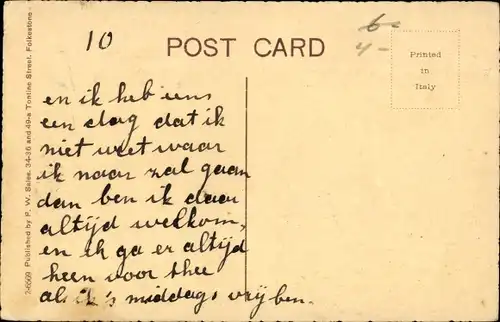 10
6-
4-
POST CARD
Printed
in
Italy
en ik heb eens
een dag dat ik
niet weet waar
ik naar zal gaan
dan ben ik daar
altijd welkom,
en ik ga er altijd
heen voor thee
als ik 's middags vrij ben.
26669 Published by F. W. Baise, 34-36 and 49-a Tontine Street, Folkestone.